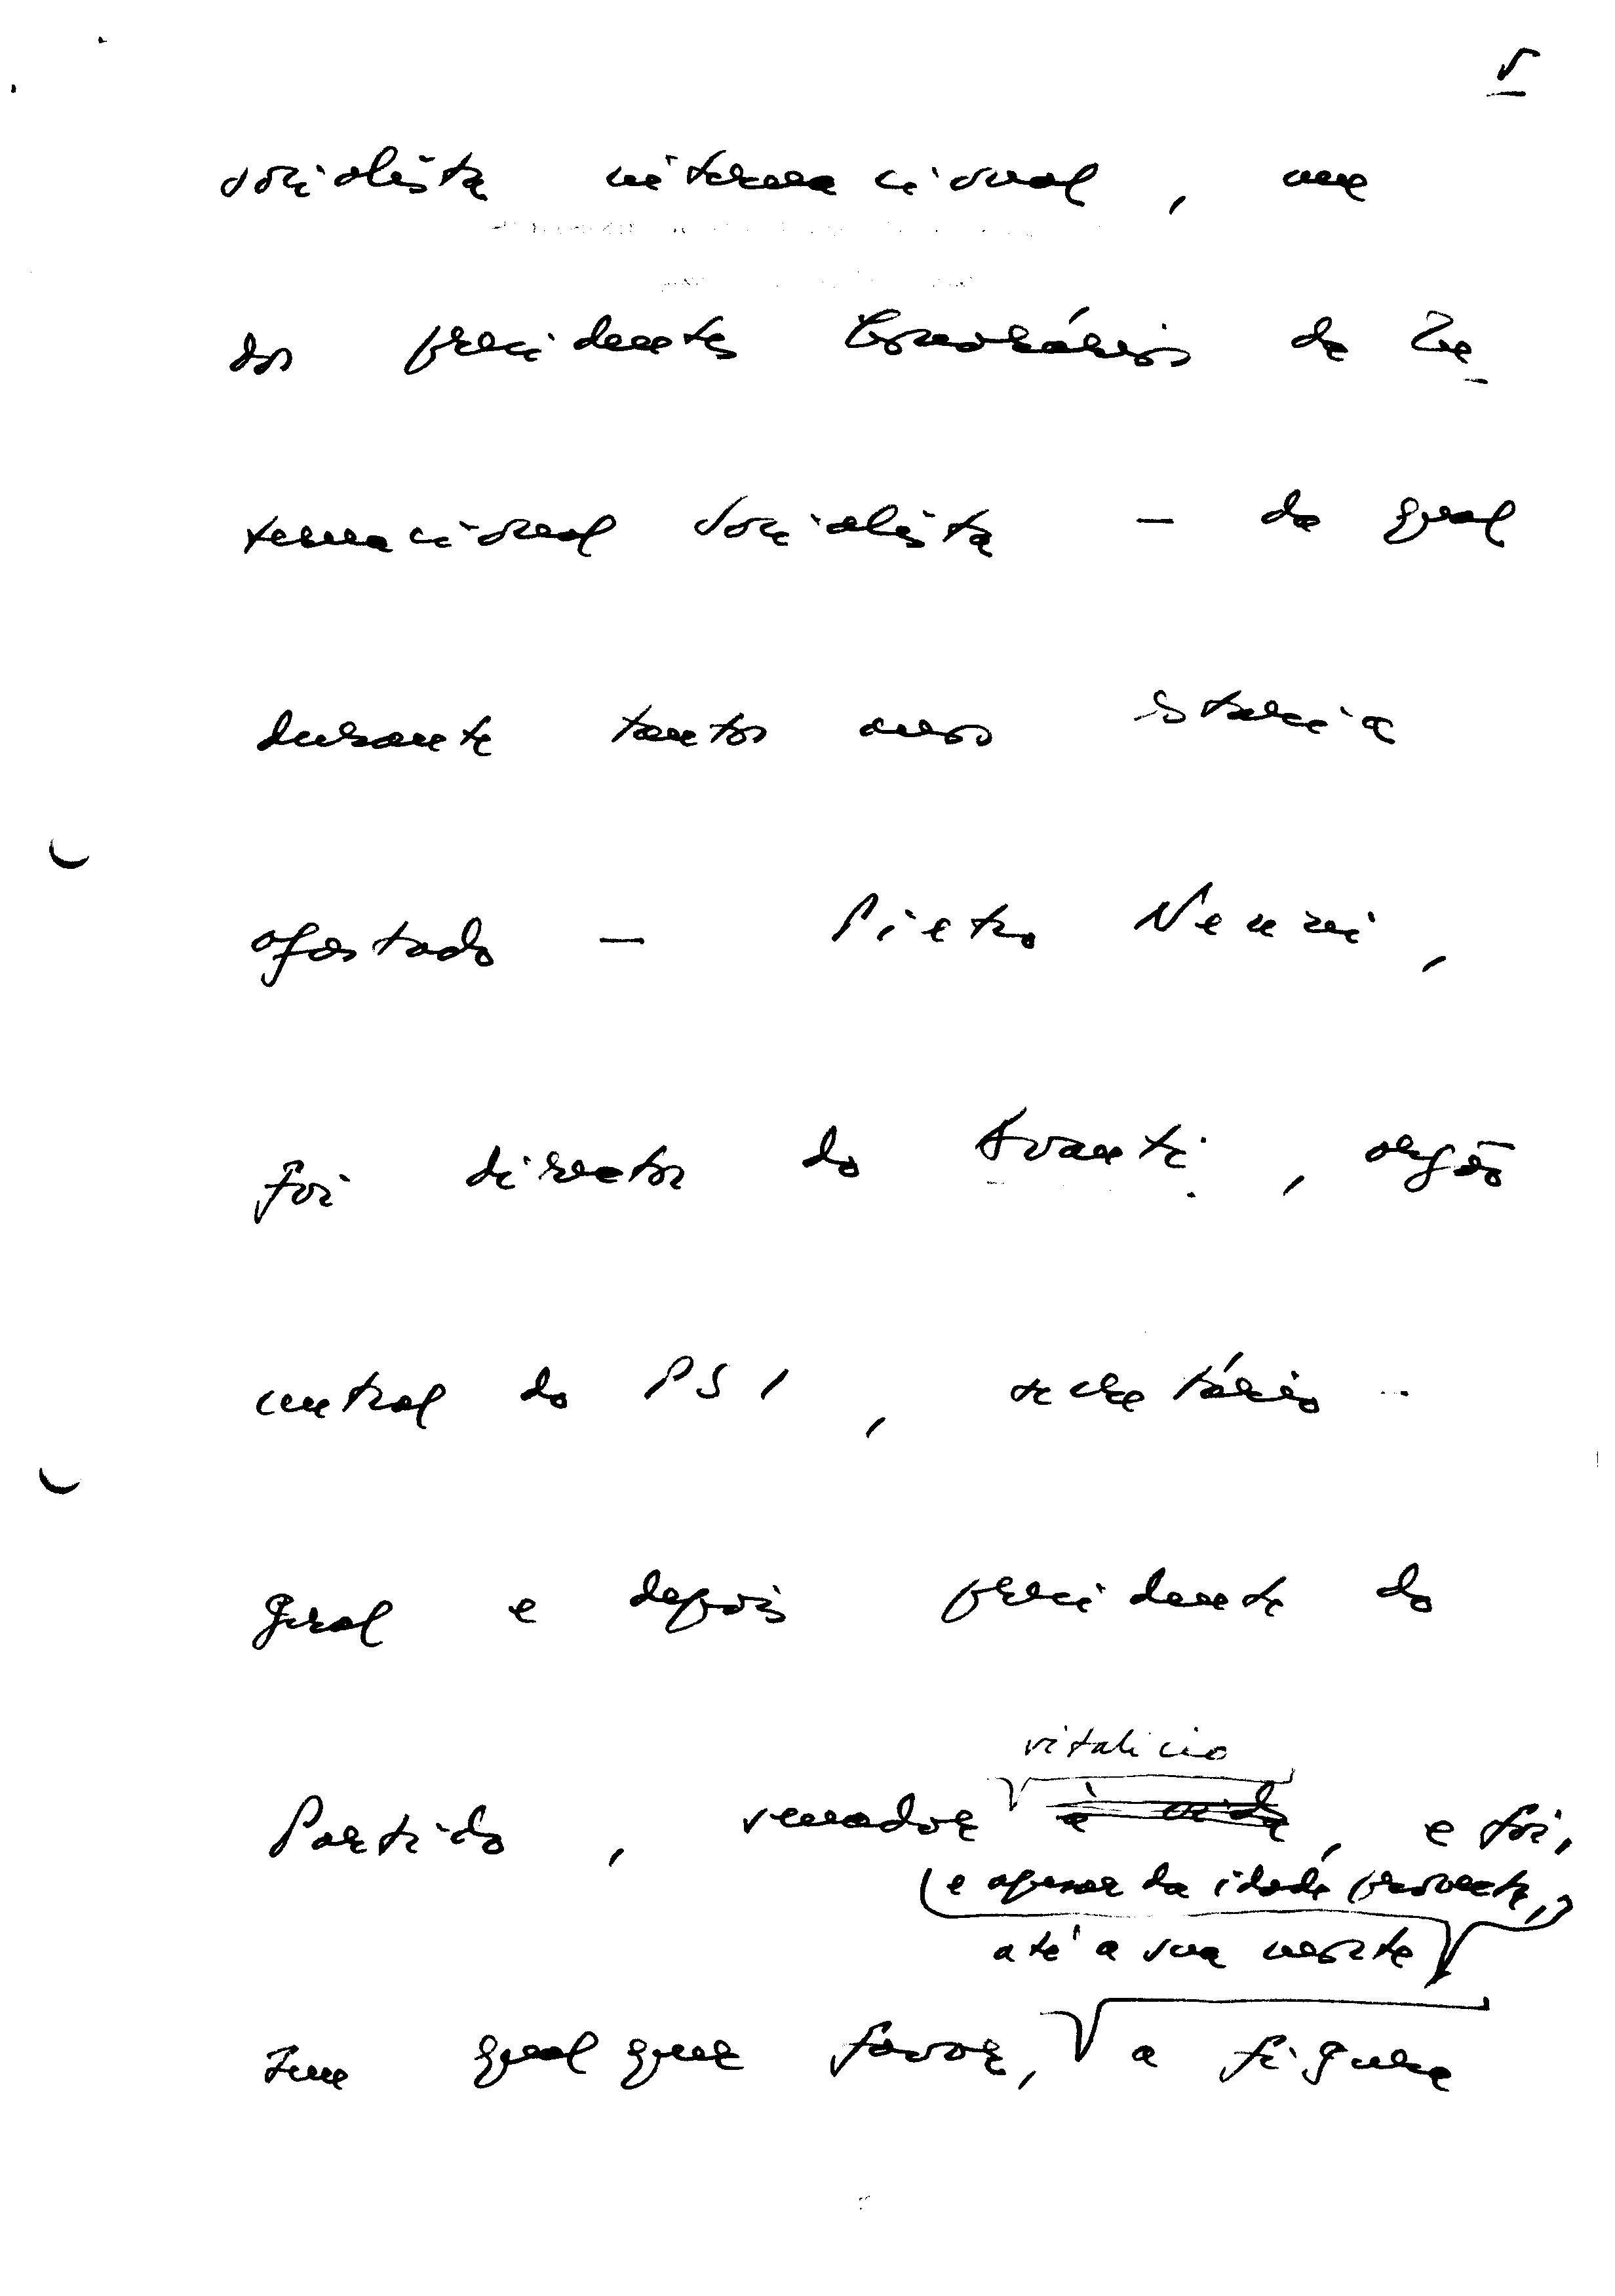 5
socialista internacional, um
dos presidentes honorários da In-
ternacional Socialista — da qual
durante tantos anos estaria
afastado — Pietro Nenni,
foi director do Avanti, orgão
central do PSI, secretário-
geral e depois presidente do
vitalicio
Partido, senador à vida, e foi,
(e apesar da idade provecta,)
até à sua morte
sem qualquer favor, a figura